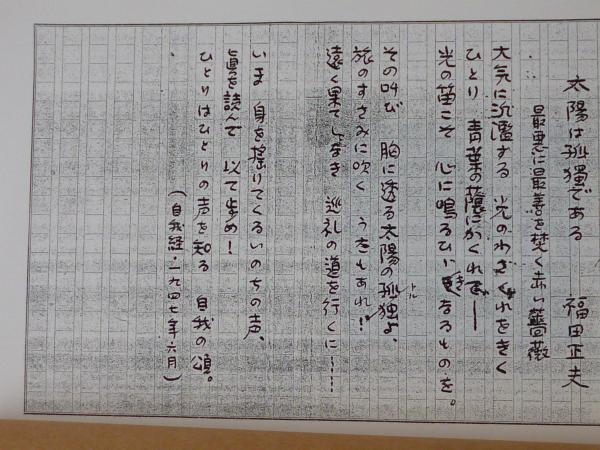 太陽は孤独である　　福田正夫
最悪に最善を焚く赤い薔薇
大気に氾濫する　光のわざくれをきく
ひとり　青葉の蔭にかくれて──
光の笛こそ　心に鳴るひゞきなるものを。
トル
その叫び　胸に透る太陽の孤独よ、
旅のすさみに吹く　うたもあれ!!
遠く果てしなき　巡礼の道を行くに──
いま　身を搾りてくるいのちの声、
眞を読んで　以て生め！
ひとりはひとりの声を知る　自我の頌。
（自我経・一九四七年六月）